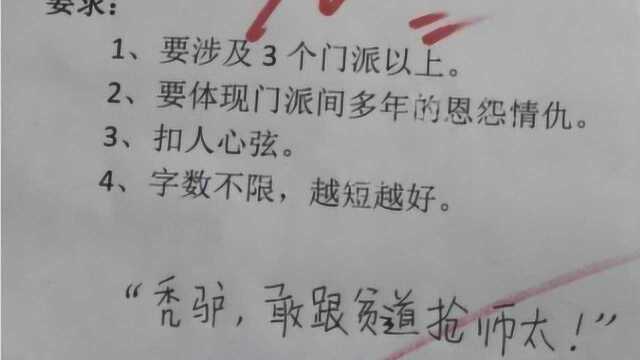 要求：
1、要涉及 3 个门派以上。
2、要体现门派间多年的恩怨情仇。
3、扣人心弦。
4、字数不限，越短越好。
“秃驴，敢跟贫道抢师太！”